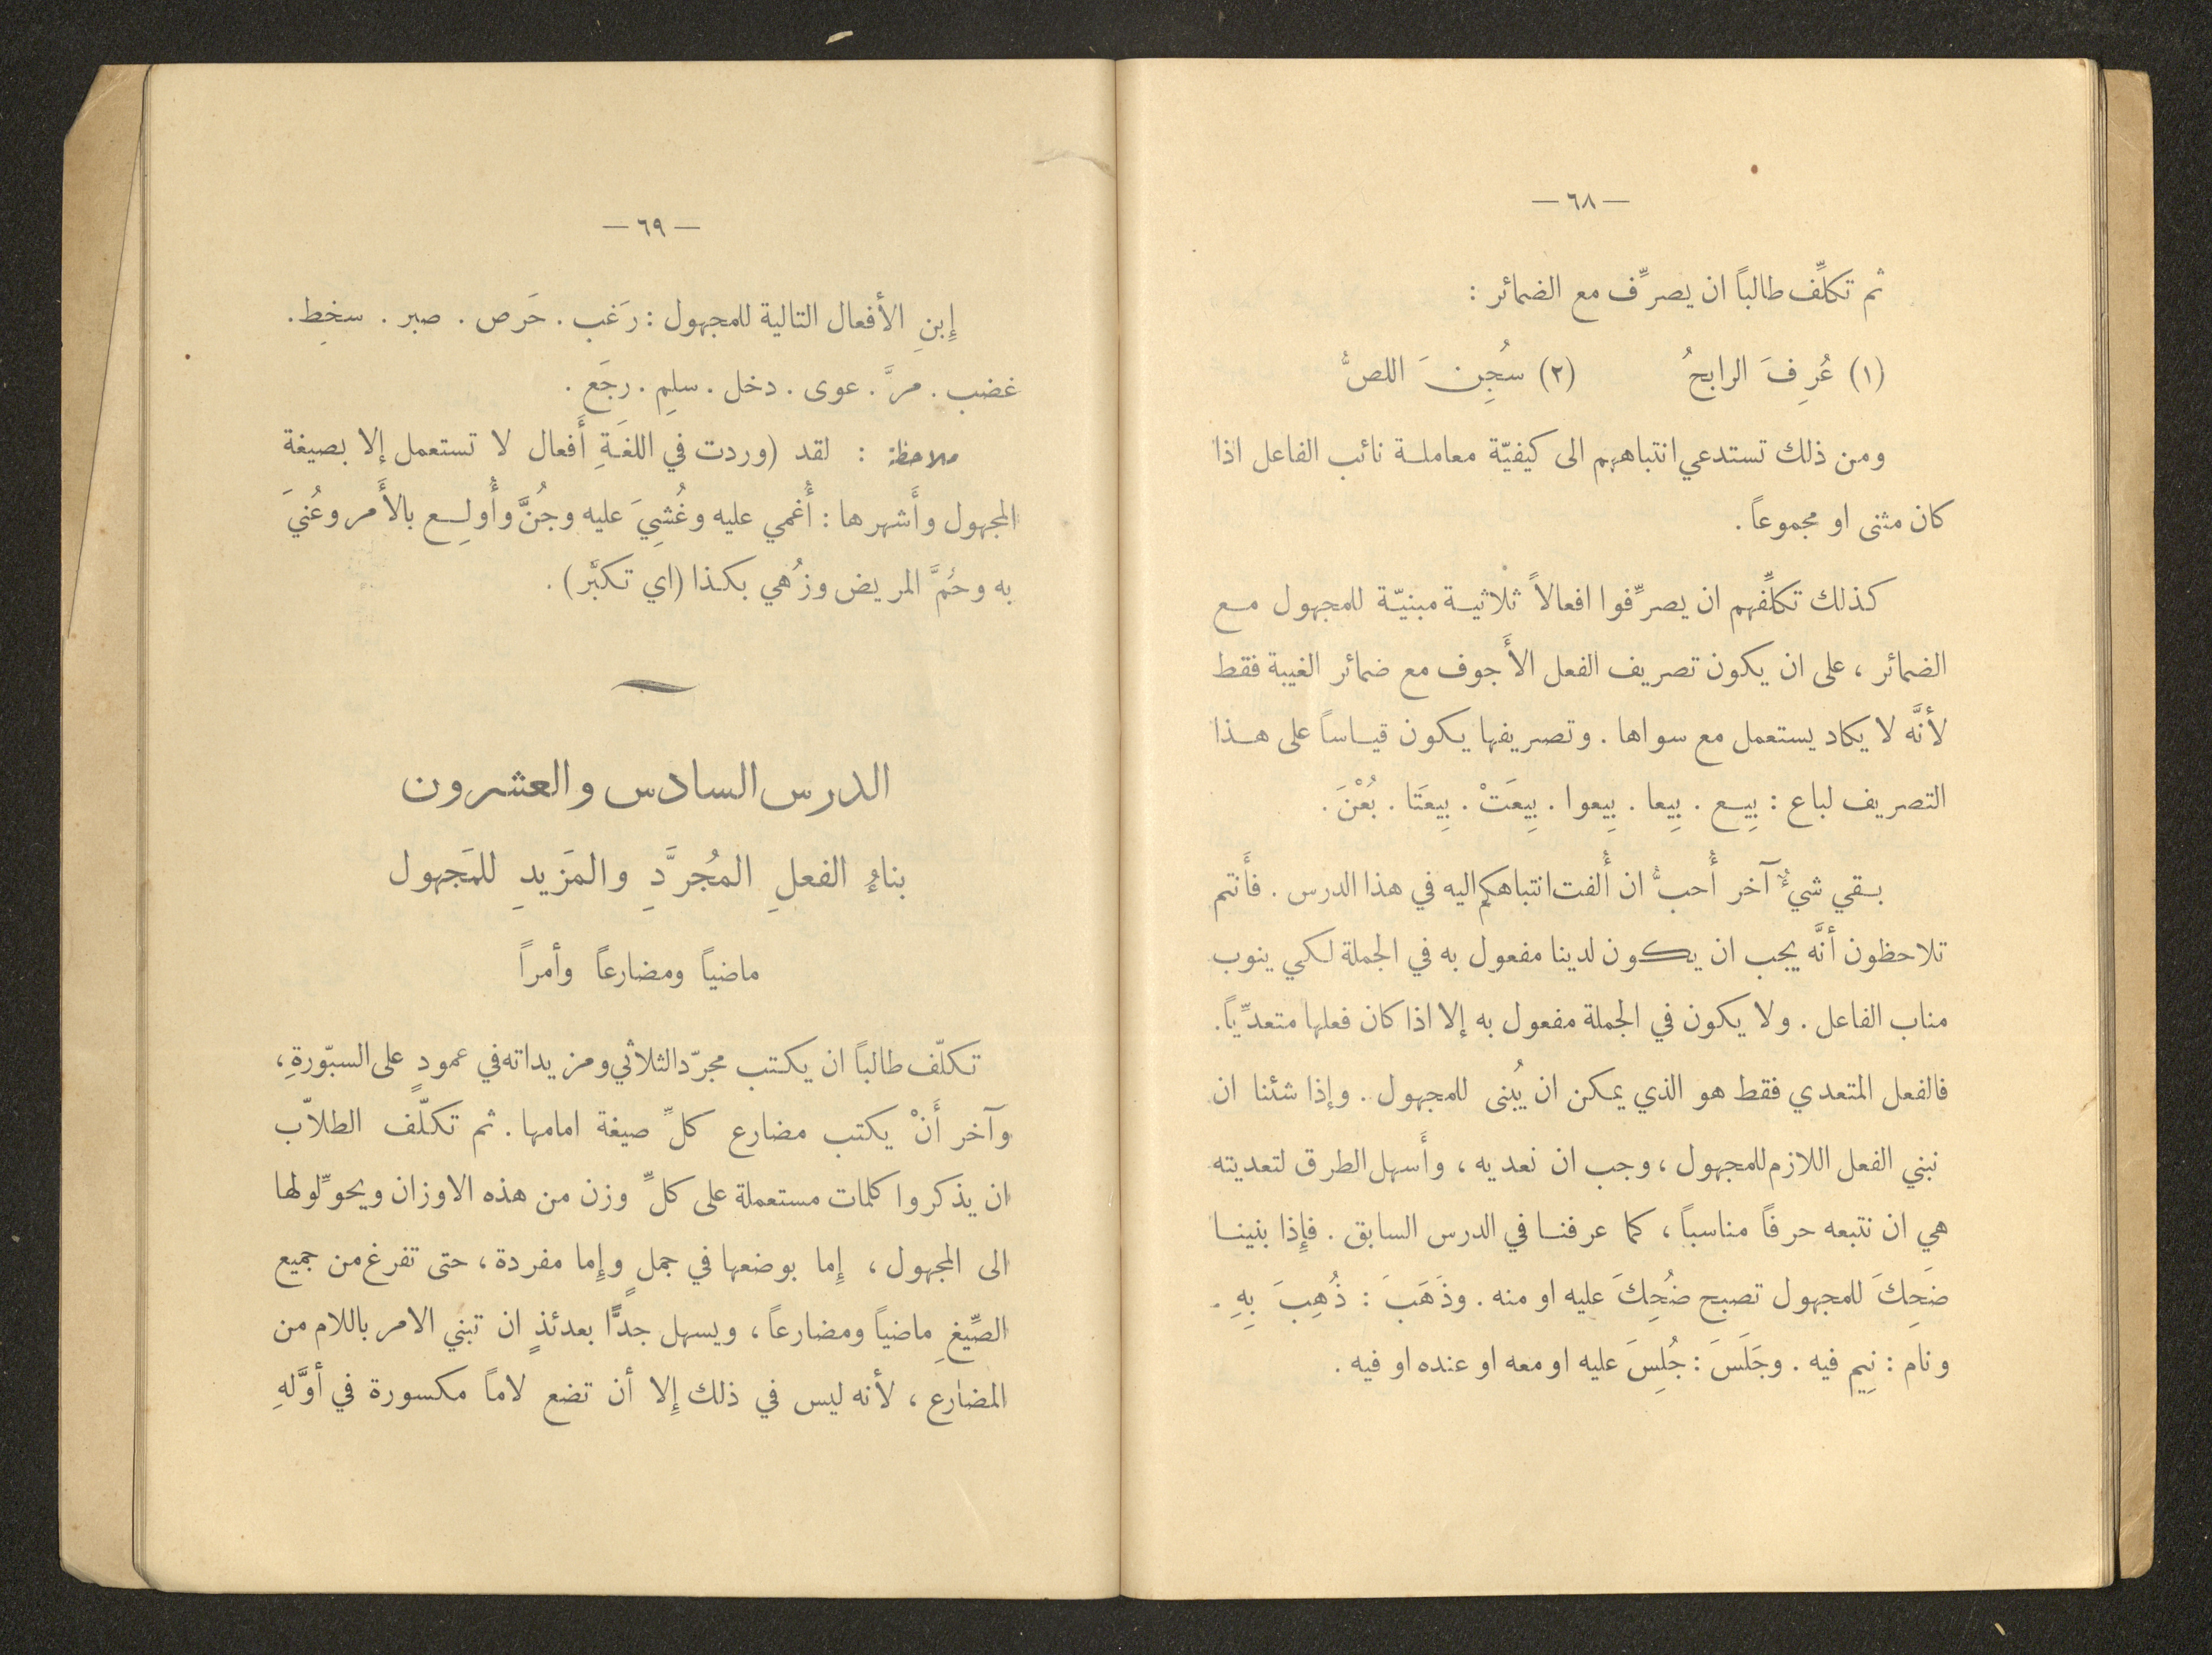 — ٦٨ —
ثم تكلِّف طالباً ان يصرِّف مع الضمائر :
(١) عُرِفَ الرابحُ (٢) سُجِنَ اللصُّ
ومن ذلك تستدعي انتباههم الى كيفيّة معاملة نائب الفاعل اذا
كان مثنى او مجموعاً .
كذلك تكلِّفهم ان يصرِّفوا افعالاً ثلاثية مبنيّة للمجهول مع
الضمائر ، على ان يكون تصريف الفعل الأَجوف مع ضمائر الغيبة فقط
لأنَّه لا يكاد يستعمل مع سواها . وتصريفها يكون قياساً على هذا
التصريف لباع : بِيع . بِيعا . بِيعوا . بِيعَتْ . بِيعَتَا . بُعْنَ .
بقي شيءٌ آخر أُحبُّ ان أُلفت انتباهكم اليه في هذا الدرس . فأَنتم
تلاحظون أنَّه يجب ان يكون لدينا مفعول به في الجملة لكي ينوب
مناب الفاعل . ولا يكون في الجملة مفعول به إلا اذا كان فعلها متعدِّياً .
فالفعل المتعدي فقط هو الذي يمكن ان يُبنى للمجهول . وإذا شئنا ان
نبني الفعل اللازم للمجهول ، وجب ان نعديه ، وأَسهل الطرق لتعديته
هي ان نتبعه حرفاً مناسباً ، كما عرفنا في الدرس السابق . فإِذا بنينا
ضَحِكَ للمجهول تصبح ضُحِكَ عليه او منه . وذَهَبَ : ذُهِبَ بِهِ .
ونام : نِيم فيه . وجَلَسَ : جُلِسَ عليه او معه او عنده او فيه .
— ٦٩ —
إِبنِ الأفعال التالية للمجهول : رَغب . حَرص . صبر . سخِط .
غضب . مرَّ . عوى . دخل . سلِم . رجَع .
ملاحظة : لقد (وردت في اللغَةِ أَفعال لا تستعمل إلا بصيغة
المجهول وأَشهرها : أُغمي عليه وغُشِيَ عليه وجُنَّ وأُولِع بالأَمر وعُنيَ
به وحُمَّ المريض وزُهي بكذا (اي تكبَّر) .
الدرس السادس والعشرون
بناءُ الفعلِ المُجرَّدِ والمَزيدِ للمَجهول
ماضياً ومضارعاً وأمراً
تكلّف طالباً ان يكتب مجرّد الثلاثي ومزيداته في عمودٍ على السبّورةِ ،
وآخر أَنْ يكتب مضارع كلِّ صيغة امامها . ثم تكلّف الطلاّب
ان يذكروا كلمات مستعملة على كلِّ وزن من هذه الاوزان ويحوِّلولها
الى المجهول ، إِما بوضعها في جملٍ وإِما مفردة ، حتى تفرغ من جميع
الصِّيغِ ماضياً ومضارعاً ، ويسهل جدًّا بعدئذٍ ان تبني الامر باللام من
المضارع ، لأنه ليس في ذلك إِلا أن تضع لاماً مكسورة في أوَّلهِ